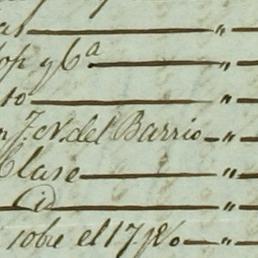 as — "
op y C.ª — "
to — "
n J. N. del Barrio — "
Clase — "
Cid — "
sobre el 17 p% — "